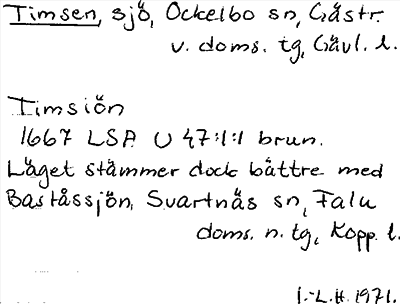 Timsen, sjö, Ockelbo sn, Gästr.
v. doms. tg, Gävl. l.
Timsiön
1667 LSA U 47:1:1 brun.
Läget stämmer dock bättre med
Baståssjön, Svartnäs sn, Falu
doms. n. tg, Kopp. l.
I.-L.H. 1971.